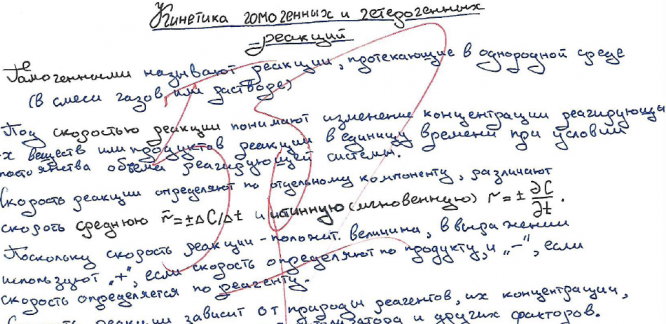 Кинетика гомогенных и гетерогенных
реакций
Гомогенными называют реакции, протекающие в однородной среде
(в смеси газов или растворе)
Под скоростью реакции понимают изменение концентрации реагирующи-
х веществ или продуктов реакции в единицу времени при условии
постоянства объема реагирующей системы.
Скорость реакции определяют по отдельному компоненту, различают
скорость среднюю ṽ=±ΔC/Δt и истинную (мгновенную) v = ± ∂C/∂t.
Поскольку скорость реакции - положит. величина, в выражении
используют „+", если скорость определяют по продукту, и „−", если
скорость определяется по реагенту.
реакции зависит от природы реагентов, их концентрации,
и других факторов.